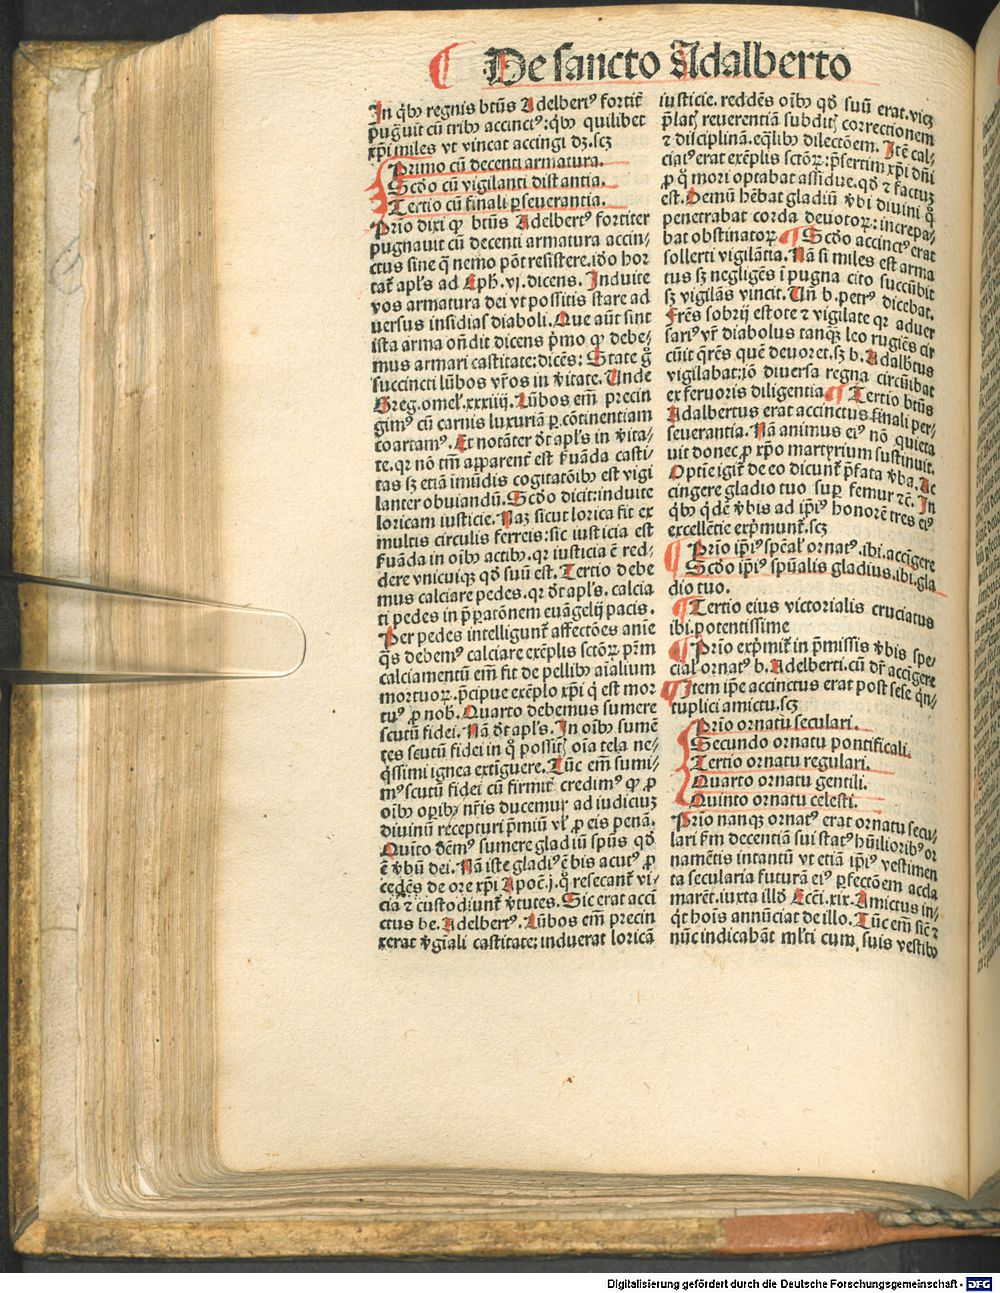 ¶ De sancto Adalberto
In qͥbꝫ regnis btūs Adelbertꝰ fortit̄
pugͣuit cū tribꝫ accinctꝰ: qͥbꝫ quilibet
xp̄i miles vt vincat accingi dꝫ. scꝫ
Primo cū decenti armatura.
Scd̄o cū vigilanti distantia.
Tertio cū finali ꝑseuerantia.
Prīo dixi ꝙ btūs Adelbertꝰ fortiter
pugnauit cū decenti armatura accin⸗
ctus sine qͣ nemo pōt resistere. iďo hor
tat̄ apl̓s ad Eph̓. vj. dicens. Induite
vos armatura dei vt possitis stare ad
uersus insidias diaboli. Que aūt sint
ista arma oñdit dicens pͥmo ꝙ debe⸗
mus armari castitate: dicēs: State gͦ
succincti lūbos vr̄os in v̓itate. Unde
Greg. omel̓. xxxiij. Lūbos em̄ precin
gimꝰ cū carnis luxuriā ꝑ cōtinentiam
coartamꝰ. Et notāter dt̄ apl̓s in v̓ita⸗
te. qꝛ nō tm̄ apparent̓ est ẜuāda casti
tas sꝫ etiā imūdis cogitatōibꝫ est vigi
lanter obuiandū. Scd̄o dicit: induite
loricam iusticie. Naꝫ sicut lorica fit ex
multis circulis ferreis: sic iusticia est
ẜuāda in oībꝫ actibꝫ. qꝛ iusticia ē red⸗
dere vnicuiqꝫ qd̓ suū est. Tertio debe
mus calciare pedes. qꝛ dt̄ apl̓s. calcia
ti pedes in p̄paratōnem euāgelij pacis.
Per pedes intelligunt̄ affectōes anīe
qͣs debemꝰ calciare exēplis sctōꝝ pr̄m
calciamentū em̄ fit de pellibꝫ aīalium
mortuoꝝ. p̄cipue exēplo xp̄i qͥ est mor
tuꝰ ꝓ nob̓. Quarto debemus sumere
scutū fidei. Nā dt̄ apl̓s. In oībꝫ sumē
tes scutū fidei in qͦ possitꝭ oīa tela ne⸗
qͥssimi ignea extīguere. Tūc em̄ sumi⸗
mꝰ scutū fidei cū firmit̄ credimꝰ ꝙ ꝓ
oībꝫ oꝑibꝫ nr̄is ducemur ad iudiciuꝫ
diuinū recepturi p̄miū vl̓ ꝓ eis penā.
Quīto dēmꝰ sumere gladiū spūs qd̓
ē v̓bū dei. Nā iste gladiꝰ ē bis acutꝰ ꝓ
cedēs de ore xp̄i Apoc̄. j. qͦ resecant̄ vi⸗
cia ⁊ custodiunt̄ v̓tutes. Sic erat acci
ctus be. Adelbertꝰ. Lūbos em̄ precin
xerat v̓gīali castitate: induerat loricā
iusticie. reddēs oībꝫ qd̓ suū erat. vicꝫ
p̄latꝭ reuerentiā subditꝭ correctionem
⁊ disciplinā. eq̄libꝫ dilectōem. Itē cal⸗
ciatꝰ erat exēplis sctōꝝ: p̄sertim xp̄i dn̄i
ꝓ qͦ mori optabat assidue. qd̓ ⁊ factuꝫ
est. Demū hēbat gladiū v̓bi diuini qͦ
penetrabat corda deuotoꝝ: increpa⸗
bat obstinatoꝝ ¶ Scd̄o accinctꝰ erat
sollerti vigilātia. Nā si miles est arma
tus sꝫ negligēs ī pugna cito succūbit
sꝫ vigilās vincit. Uñ b. petrꝰ dicebat.
Frēs sobrij estote ⁊ vigilate qꝛ aduer
sariꝰ vr̄ diabolus tanqꝫ leo rugiēs cir
cūit qr̄ēs quē deuoret. sꝫ b. Adalb̓tus
vigilabat: iō diuersa regna circūibat
ex feruoris diligentia ¶ Tertio btūs
Adalbertus erat accinctus finali per⸗
seuerantia. Nā animus eiꝰ nō quieta
uit donec ꝓ xp̄o martyrium sustinuit.
Optīe igit̄ de eo dicunt̄ p̄fata v̓ba. Ac
cingere gladio tuo suꝑ femur ⁊c̄. In
qͥbꝫ qͥdē v̓bis ad ip̄iꝰ honorē tres eiꝰ
excellētie exp̄munt̄. scꝫ
¶ Prīo ip̄iꝰ sp̄eal̓ ornatꝰ. ibi. accīgere
Scd̄o ip̄iꝰ spūalis gladius. ibi. gla
dio tuo.
¶ Tertio eius victorialis cruciatus
ibi. potentissime
¶ Prīo exp̄mit̄ in p̄missis v̓bis spe⸗
cial̓ ornatꝰ b. Adelberti. cū dr̄ accīgere
¶ Item ip̄e accinctus erat post sese qͥn⸗
tuplici amictu. scꝫ
Prīo ornatu seculari.
Secundo ornatu pontificali.
Tertio ornatu regulari.
Quarto ornatu gentili.
Quinto ornatu celesti.
Prīo nanqꝫ ornatꝰ erat ornatu secu⸗
lari ẜm decentiā sui statꝰ hūilioribꝰ or
namētis intantū vt etiā ip̄iꝰ vestimen
ta secularia futurā eiꝰ ꝑfectōem accla
marēt. iuxta illd̓ Ecc̄i. xix. Amictus in⸗
qͥt hoīs annūciat de illo. Tūc em̄ sic̄ ⁊
nūc indicabāt ml̓ti cum suis vestibꝫ
Digitalisierung gefördert durch die Deutsche Forschungsgemeinschaft - DFG